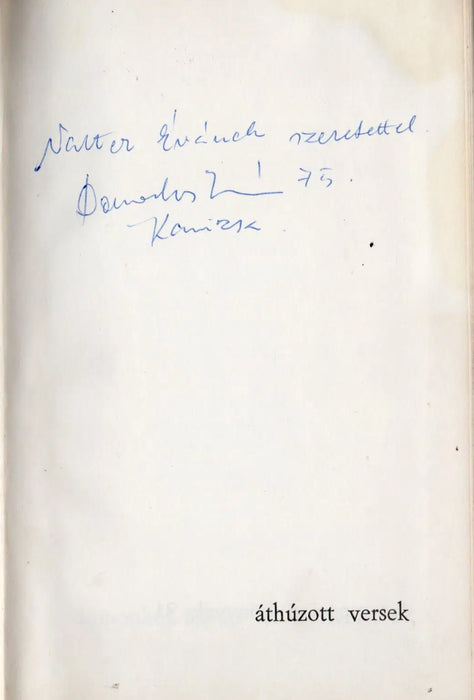 Natter Évának szeretettel.
Domonkos I 75.
Kanizsa
áthúzott versek